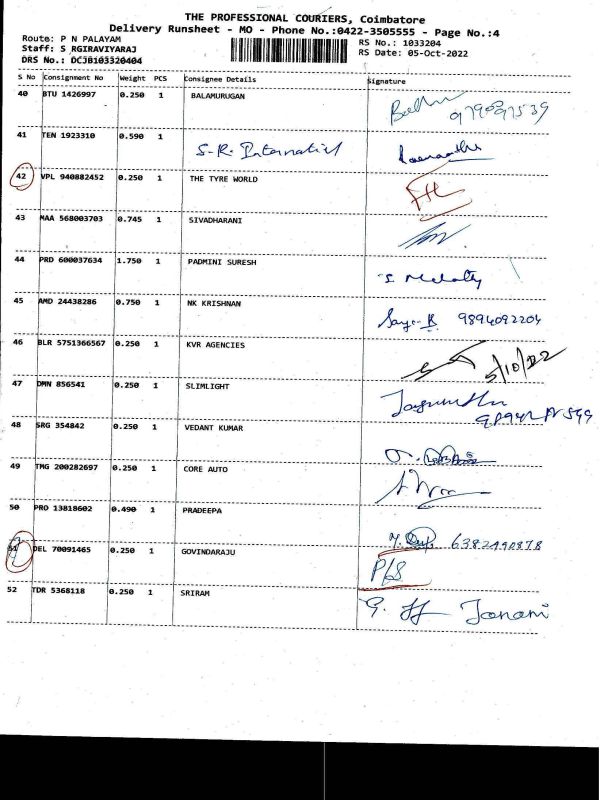 THE PROFESSIONAL COURIERS, Coimbatore
Delivery Runsheet - MO - Phone No.:0422-3505555 - Page No.:4
Route: P N PALAYAM
Staff: S RGIRAVIYARAJ
DRS No.: DCJB103320404
RS No.: 1033204
RS Date: 05-Oct-2022
S No Consignment No Weight PCS Consignee Details Signature
40 BTU 1426997 0.250 1 BALAMURUGAN
41 TEN 1923310 0.590 1 S.R. International
42 VPL 940882452 0.250 1 THE TYRE WORLD
43 MAA 568003703 0.745 1 SIVADHARANI
44 PRD 600037634 1.750 1 PADMINI SURESH
45 AMD 24438286 0.750 1 NK KRISHNAN 9894092204
46 BLR 5751366567 0.250 1 KVR AGENCIES 5/10/22
47 DMN 856541 0.250 1 SLIMLIGHT
48 SRG 354842 0.250 1 VEDANT KUMAR
49 TMG 200282697 0.250 1 CORE AUTO
50 PRO 13818602 0.490 1 PRADEEPA 6382490878
51 DEL 70091465 0.250 1 GOVINDARAJU
52 TDR 5368118 0.250 1 SRIRAM Janani